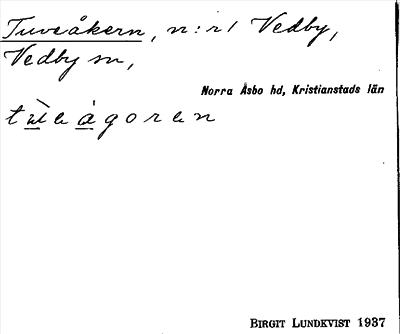 Tuveåkern, n:r 1 Vedby,
Vedby sn,
Norra Åsbo hd, Kristianstads län
BIRGIT LUNDKVIST 1937